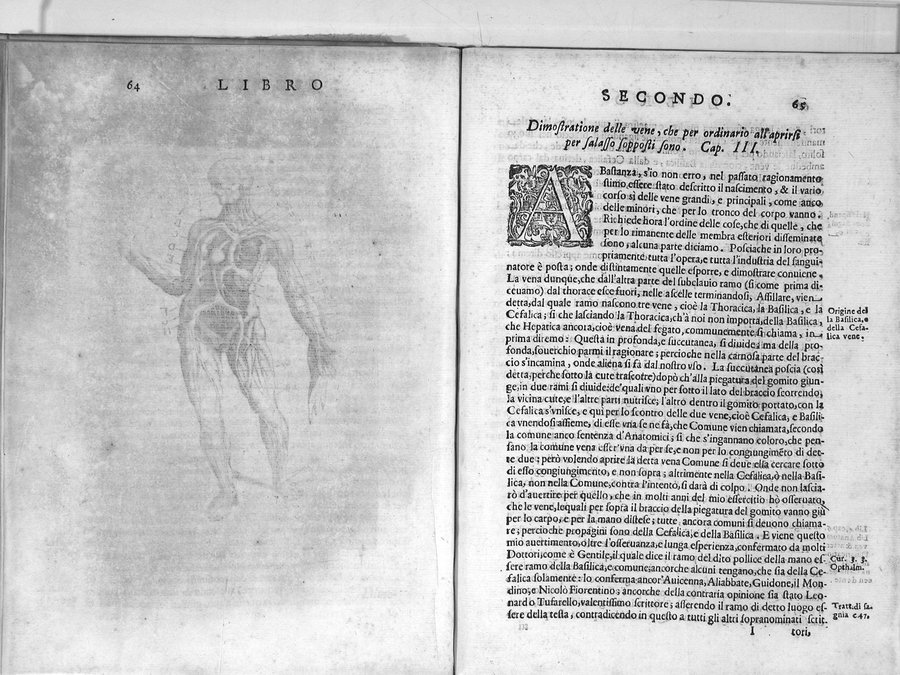 64 LIBRO
SECONDO. 65
Dimostratione delle vene, che per ordinario all'aprirsi
per salasso sopposti sono. Cap. III.
ABastanza, s'io non erro, nel passato ragionamento
stimo, essere stato descritto il nascimento, & il vario
corso sì delle vene grandi, e principali, come anco
delle minori, che per lo tronco del corpo vanno.
Richiede hora l'ordine delle cose, che di quelle, che
per lo rimanente delle membra esteriori disseminate
sono, alcuna parte diciamo. Posciache in loro pro-
priamente tutta l'opera, e tutta l'industria del sangui-
natore è posta; onde distintamente quelle esporre, e dimostrare conuiene.
La vena dunque, che dall'altra parte del subclauio ramo (si come prima di-
ceuamo) dal thorace esce fuori, nelle ascelle terminandosi, Assillare, vien
detta, dal quale ramo nascono tre vene, cioè la Thoracica, la Basilica, e la
Cefalica; si che lasciando la Thoracica, ch'à noi non importa, della Basilica,
che Hepatica ancora, cioè vena del fegato, communemente si chiama, in
prima diremo: Questa in profonda, e succutanea, si diuide; ma della pro-
fonda, souerchio parmi il ragionare; percioche nella carnosa parte del brac-
cio s'incamina, onde aliena si fà dal nostro vso. La succutanea poscia (così
detta, perche sotto la cute trascorre) dopò ch'alla piegatura del gomito giun-
ge, in due rami si diuide: de'quali vno per sotto il lato del braccio scorrendo,
la vicina cute, e l'altre parti nutrisce; l'altro dentro il gomito portato, con la
Cefalica s'vnisce, e qui per lo scontro delle due vene, cioè Cefalica, e Basili-
ca vnendosi assieme, di esse vna se ne fà, che Comune vien chiamata, secondo
la comune anco sentenza d'Anatomici; si che s'ingannano coloro, che pen-
sano la comune vena esser vna da per se, e non per lo congiungimẽto di det-
te due: però volendo aprire la detta vena Comune si deue ella cercare sotto
di esso congiungimento, e non sopra; altrimente nella Cefalica, ò nella Basi-
lica, non nella Comune, contra l'intento, si darà di colpo. Onde non lascia-
rò d'auertire per quello, che in molti anni del mio essercitio hò osseruato,
che le vene, lequali per sopra il braccio della piegatura del gomito vanno giù
per lo carpo, e per la mano distese; tutte ancora comuni si deuono chiama-
re; percioche propagini sono della Cefalica, e della Basilica. E viene questo
mio auertimento, oltre l'osseruanza, e lunga esperienza, confermato da molti
Dottori; come è Gentile, il quale dice il ramo del dito pollice della mano es-
sere ramo della Basilica, e comune; ancorche alcuni tengano, che sia della Ce-
falica solamente: lo conferma ancor'Auicenna, Aliabbate, Guidone, il Mon-
dino, e Nicolò Fiorentino; ancorche della contraria opinione sia stato Leo-
nardo Tufarello, valentissimo scrittore; asserendo il ramo di detto luogo es-
sere della testa, contradicendo in questo a tutti gli altri sopranominati scrit-
I tori,
Origine del
la Basilica, e
della Cefa-
lica vene.
Cur. 3. 3.
Opthalm.
Tratt. di sa-
gnia c. 47.